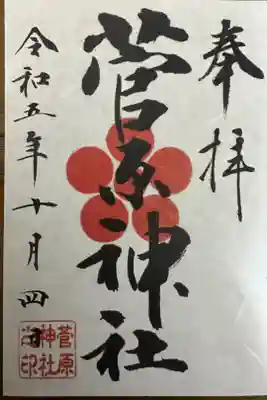 奉拝
菅原神社
令和五年十月四日
菅原
神社
之印